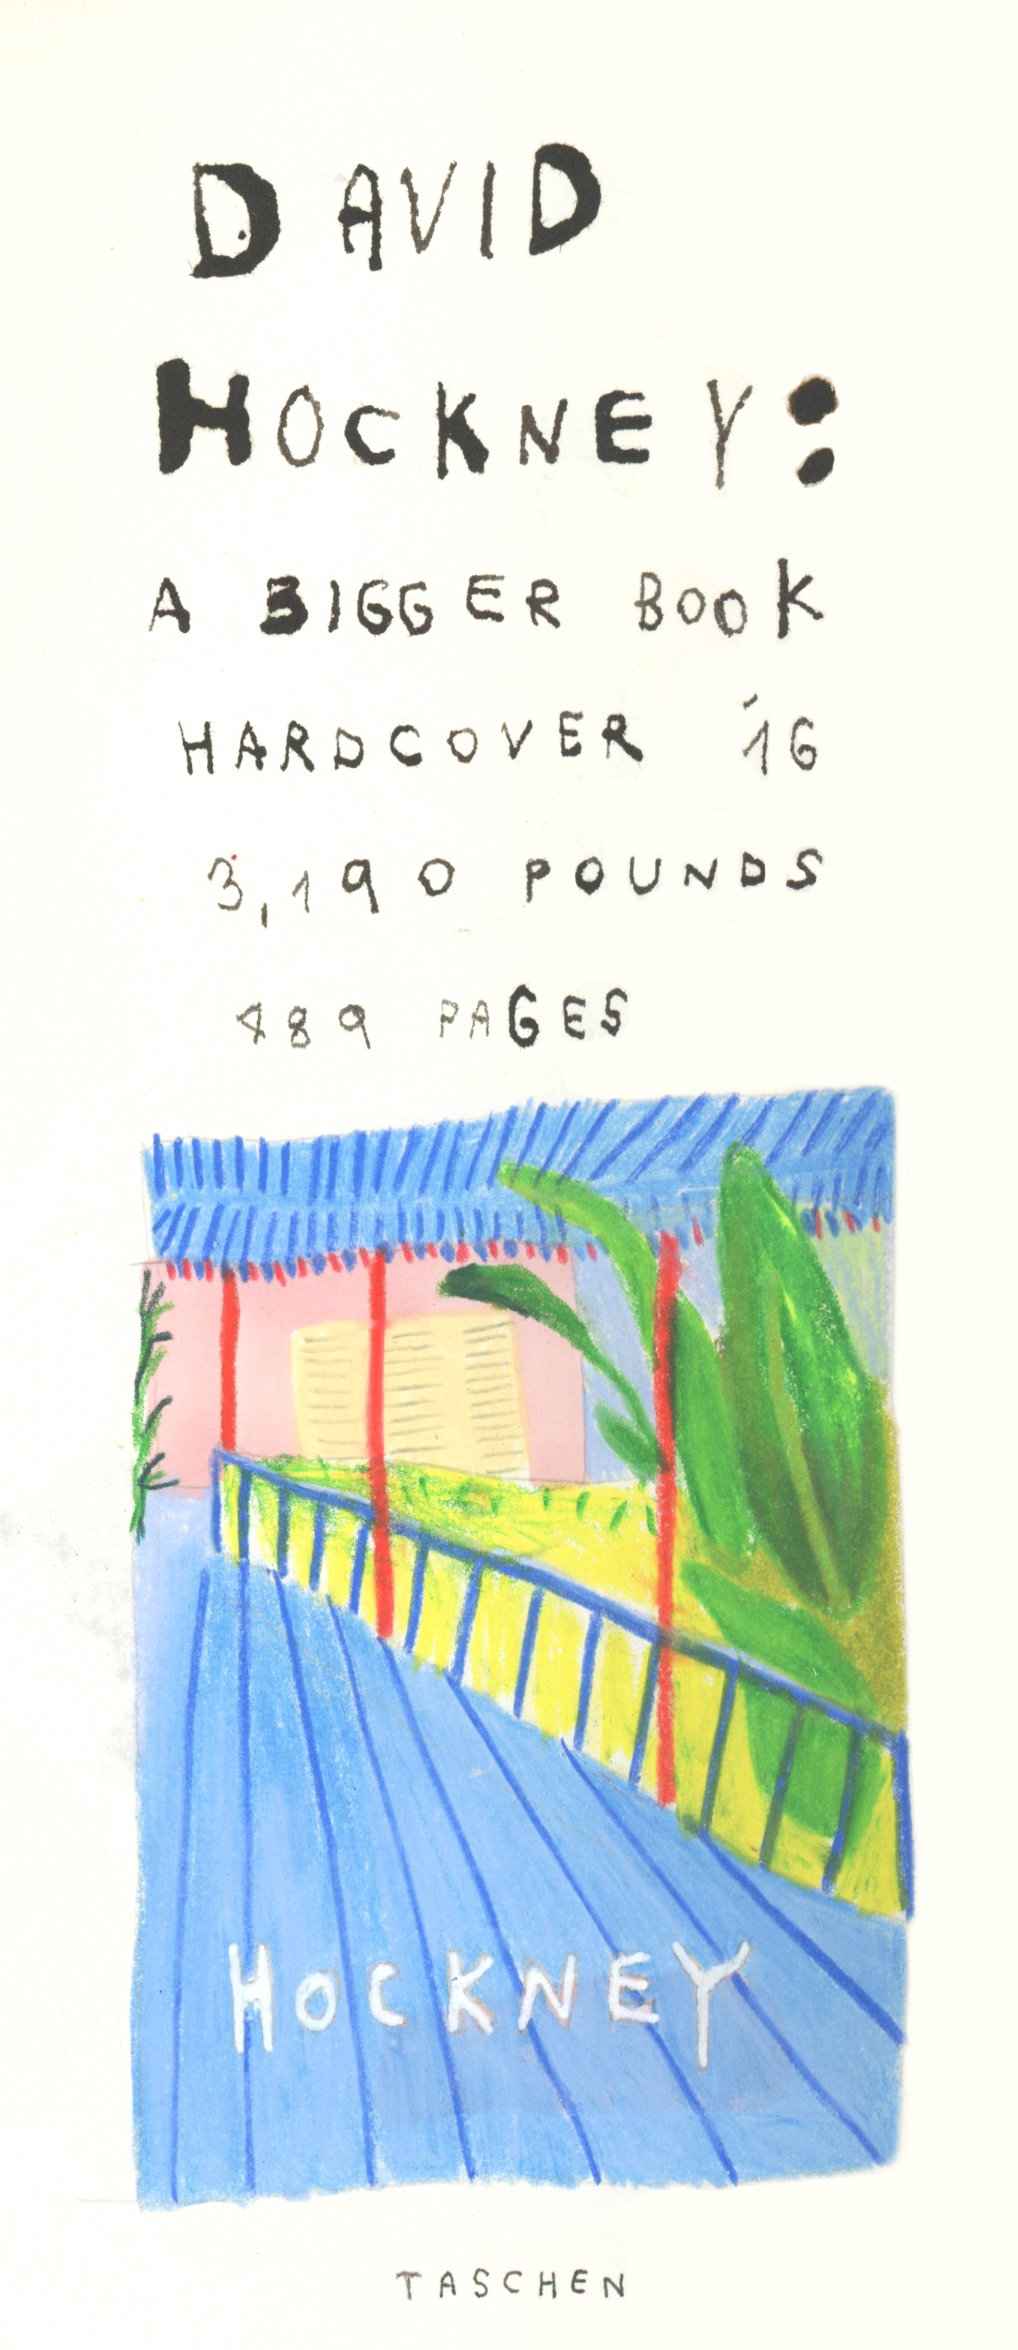 DAVID
HOCKNEY:
A BIGGER BOOK
HARDCOVER '16
3,190 POUNDS
489 PAGES
HOCKNEY
TASCHEN